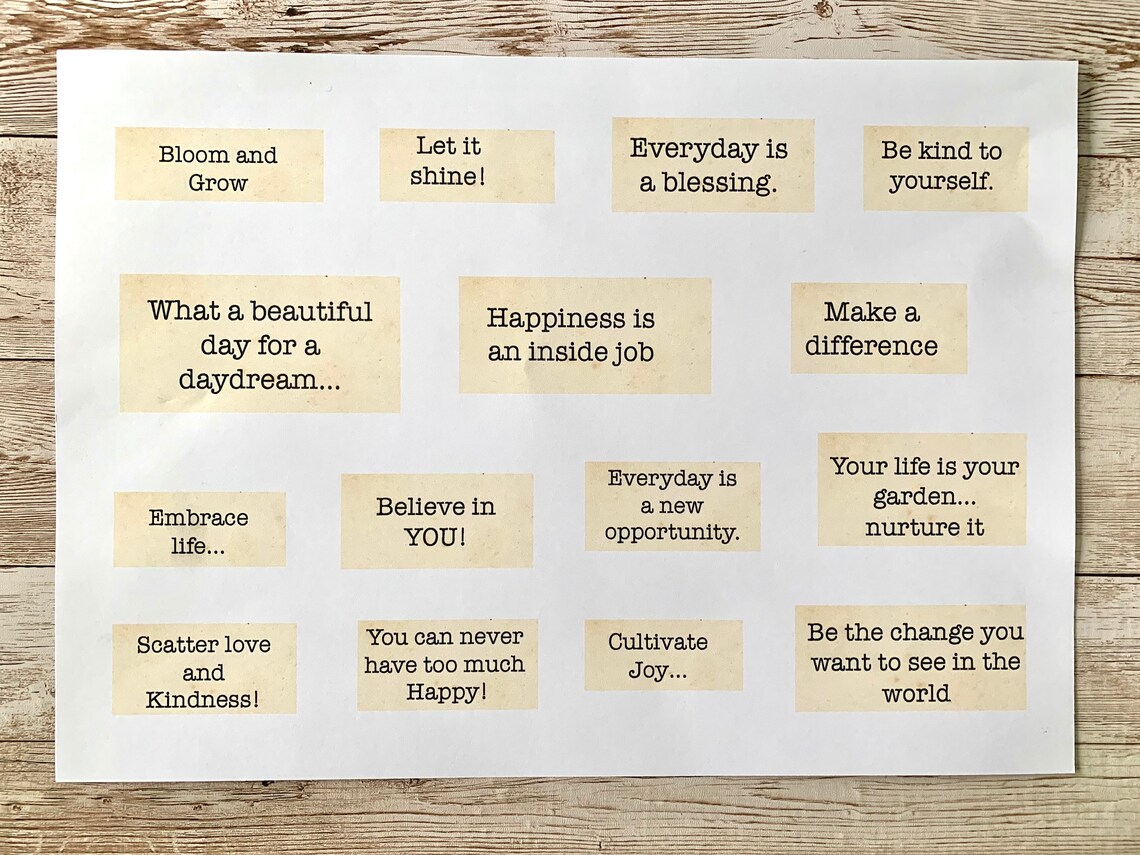 Bloom and
Grow
Let it
shine!
Everyday is
a blessing.
Be kind to
yourself.
What a beautiful
day for a
daydream...
Happiness is
an inside job
Make a
difference
Embrace
life...
Believe in
YOU!
Everyday is
a new
opportunity.
Your life is your
garden...
nurture it
Scatter love
and
Kindness!
You can never
have too much
Happy!
Cultivate
Joy...
Be the change you
want to see in the
world